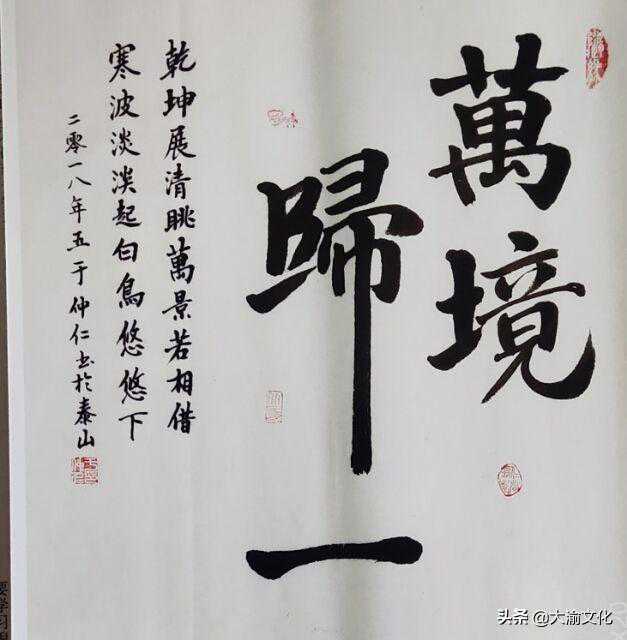 萬境
歸一
乾坤展清眺萬景若相借
寒波淡淡起白鳥悠悠下
二零一八年五于仲仁书於泰山
要学习
头条 @大渝文化